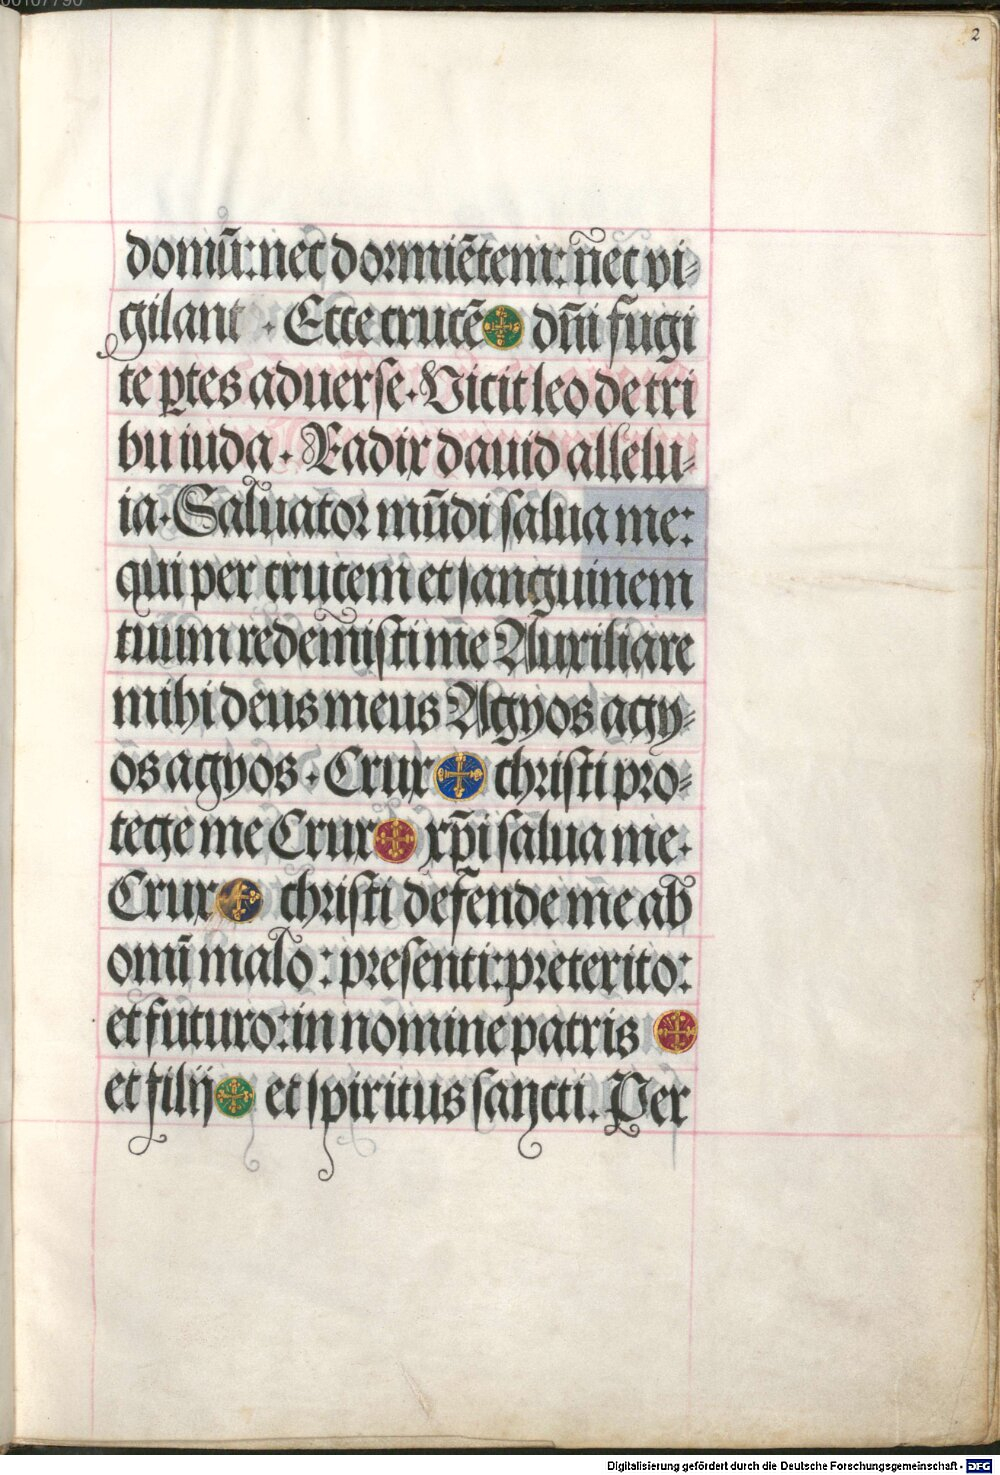 00107790
2
domū: nec dormiētem: nec vi⸗
gilant · Ecce crucē dn̄i fugi
te ꝑtes aduerse. Vicit leo de tri
bu iuda. Radix dauid allelu⸗
ia. Saluator mūdi salua me:
qui per crucem et sanguinem
tuum redemisti me Auxiliare
mihi deus meus Agyos agy⸗
os agyos. Crux christi pro⸗
tege me Crux xp̄i salua me.
Crux christi defende me ab
omī malo: presenti: preterito:
et futuro: in nomine patris
et filij et spiritus sancti. Per
Digitalisierung gefördert durch die Deutsche Forschungsgemeinschaft - DFG